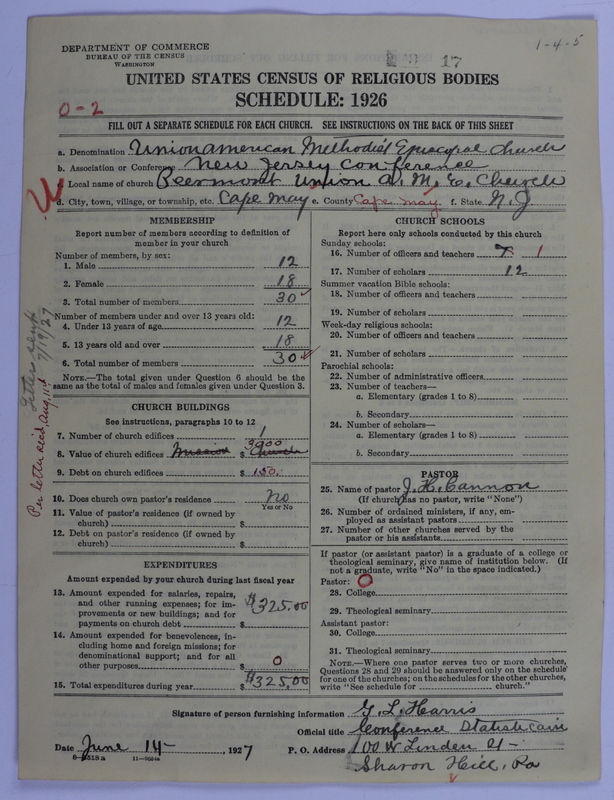 1-4-5
17
DEPARTMENT OF COMMERCE
BUREAU OF THE CENSUS
WASHINGTON
UNITED STATES CENSUS OF RELIGIOUS BODIES
SCHEDULE: 1926
0-2
FILL OUT A SEPARATE SCHEDULE FOR EACH CHURCH. SEE INSTRUCTIONS ON THE BACK OF THIS SHEET
a. Denomination Union american Methodist Episcopal Church
b. Association or Conference New Jersey Conference
c. Local name of church Peermont Union A. M. E. Church
d. City, town, village, or township, etc. Cape May e. County Cape May f. State N. J
MEMBERSHIP
Report number of members according to definition of member in your church
Number of members, by sex:
1. Male 12
2. Female 18
3. Total number of members 30
Number of members under and over 13 years old:
4. Under 13 years of age 12
5. 13 years old and over 18
6. Total number of members 30
NOTE.—The total given under Question 6 should be the same as the total of males and females given under Question 3.
Letter sent 7/19/27
Per letter rec'd, Aug.
CHURCH BUILDINGS
See instructions, paragraphs 10 to 12
7. Number of church edifices 1
8. Value of church edifices Mission $ 3000 Church
9. Debt on church edifices $ 150.
10. Does church own pastor's residence No
Yes or No
11. Value of pastor's residence (if owned by church) $
12. Debt on pastor's residence (if owned by church) $
EXPENDITURES
Amount expended by your church during last fiscal year
13. Amount expended for salaries, repairs, and other running expenses; for improvements or new buildings; and for payments on church debt $ $325.00
14. Amount expended for benevolences, including home and foreign missions; for denominational support; and for all other purposes $ 0
15. Total expenditures during year $ $325.00
CHURCH SCHOOLS
Report here only schools conducted by this church
Sunday schools:
16. Number of officers and teachers 7 1
17. Number of scholars 12
Summer vacation Bible schools:
18. Number of officers and teachers
19. Number of scholars
Week-day religious schools:
20. Number of officers and teachers
21. Number of scholars
Parochial schools:
22. Number of administrative officers
23. Number of teachers—
a. Elementary (grades 1 to 8)
b. Secondary
24. Number of scholars—
a. Elementary (grades 1 to 8)
b. Secondary
PASTOR
25. Name of pastor J. H. Cannon
(If church has no pastor, write "None")
26. Number of ordained ministers, if any, employed as assistant pastors
27. Number of other churches served by the pastor or his assistants
If pastor (or assistant pastor) is a graduate of a college or theological seminary, give name of institution below. (If not a graduate, write "No" in the space indicated.)
Pastor: O
28. College
29. Theological seminary
Assistant pastor:
30. College
31. Theological seminary
NOTE.—Where one pastor serves two or more churches, Questions 28 and 29 should be answered only on the schedule for one of the churches; on the schedules for the other churches, write "See schedule for church."
Signature of person furnishing information G. L. Harris
Official title Conference Statistician
Date June 14- , 1927 P. O. Address 100 W Linden St-
Sharon Hill, Pa
8—5518a 11—9664a